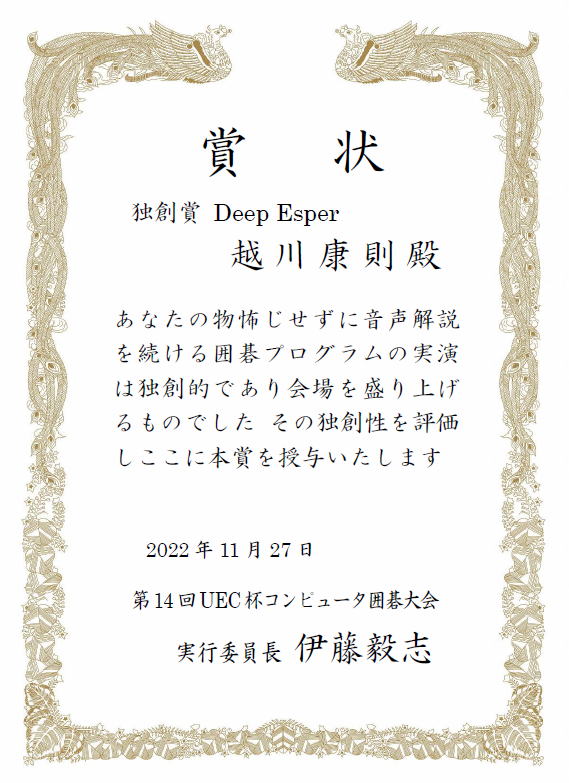 賞 状
独創賞 Deep Esper
越川康則殿
あなたの物怖じせずに音声解説
を続ける囲碁プログラムの実演
は独創的であり会場を盛り上げ
るものでした その独創性を評価
しここに本賞を授与いたします
2022年11月27日
第14回UEC杯コンピュータ囲碁大会
実行委員長 伊藤毅志